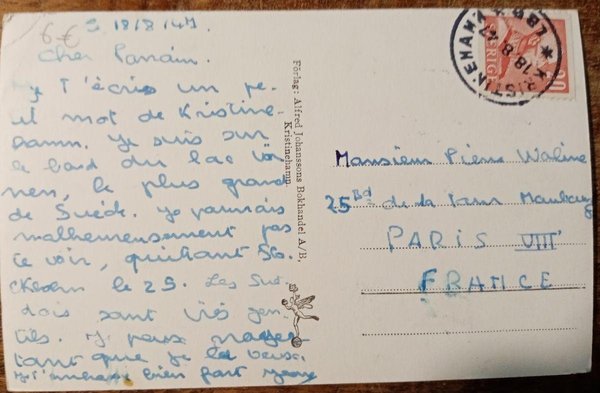 6 €
18/8/47
Cher Parrain.
Je t'écris un pe-
tit mot de Kristine-
hamn. Je suis sur
le bord du lac Vä-
nen, le plus grand
de Suède. Je
malheureusement pas
te voir, quittant Sto-
ckholm le 25. Les Sué-
dois sont très gen-
tils. Je peux nager
tant que je le veux.
Je t'embrasse bien fort
Förlag: Alfred Johanssons Bokhandel A/B,
Kristinehamn.
KRISTINEHAMN 1
18.8.47
SVERIGE
20
Monsieur Pierre Waline
25 Bd de la Tour Maubourg
PARIS VIIe
FRANCE